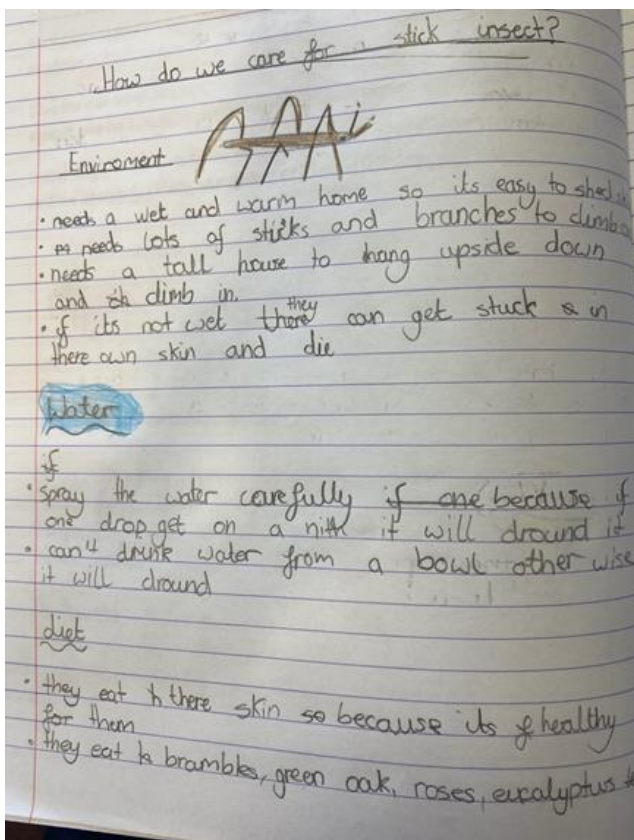 How do we care for a stick insect?
Enviroment
• needs a wet and warm home so its easy to shed
• needs lots of sticks and branches to climb
• needs a tall house to hang upside down
and climb in.
they
• if its not wet there can get stuck in
there own skin and die
Water
if
• spray the water carefully if one because if
one drop get on a nith it will dround it
• can't drink water from a bowl other wise
it will dround
diet
• they eat there skin so because its healthy
for them
• they eat brambles, green oak, roses, eucalyptus